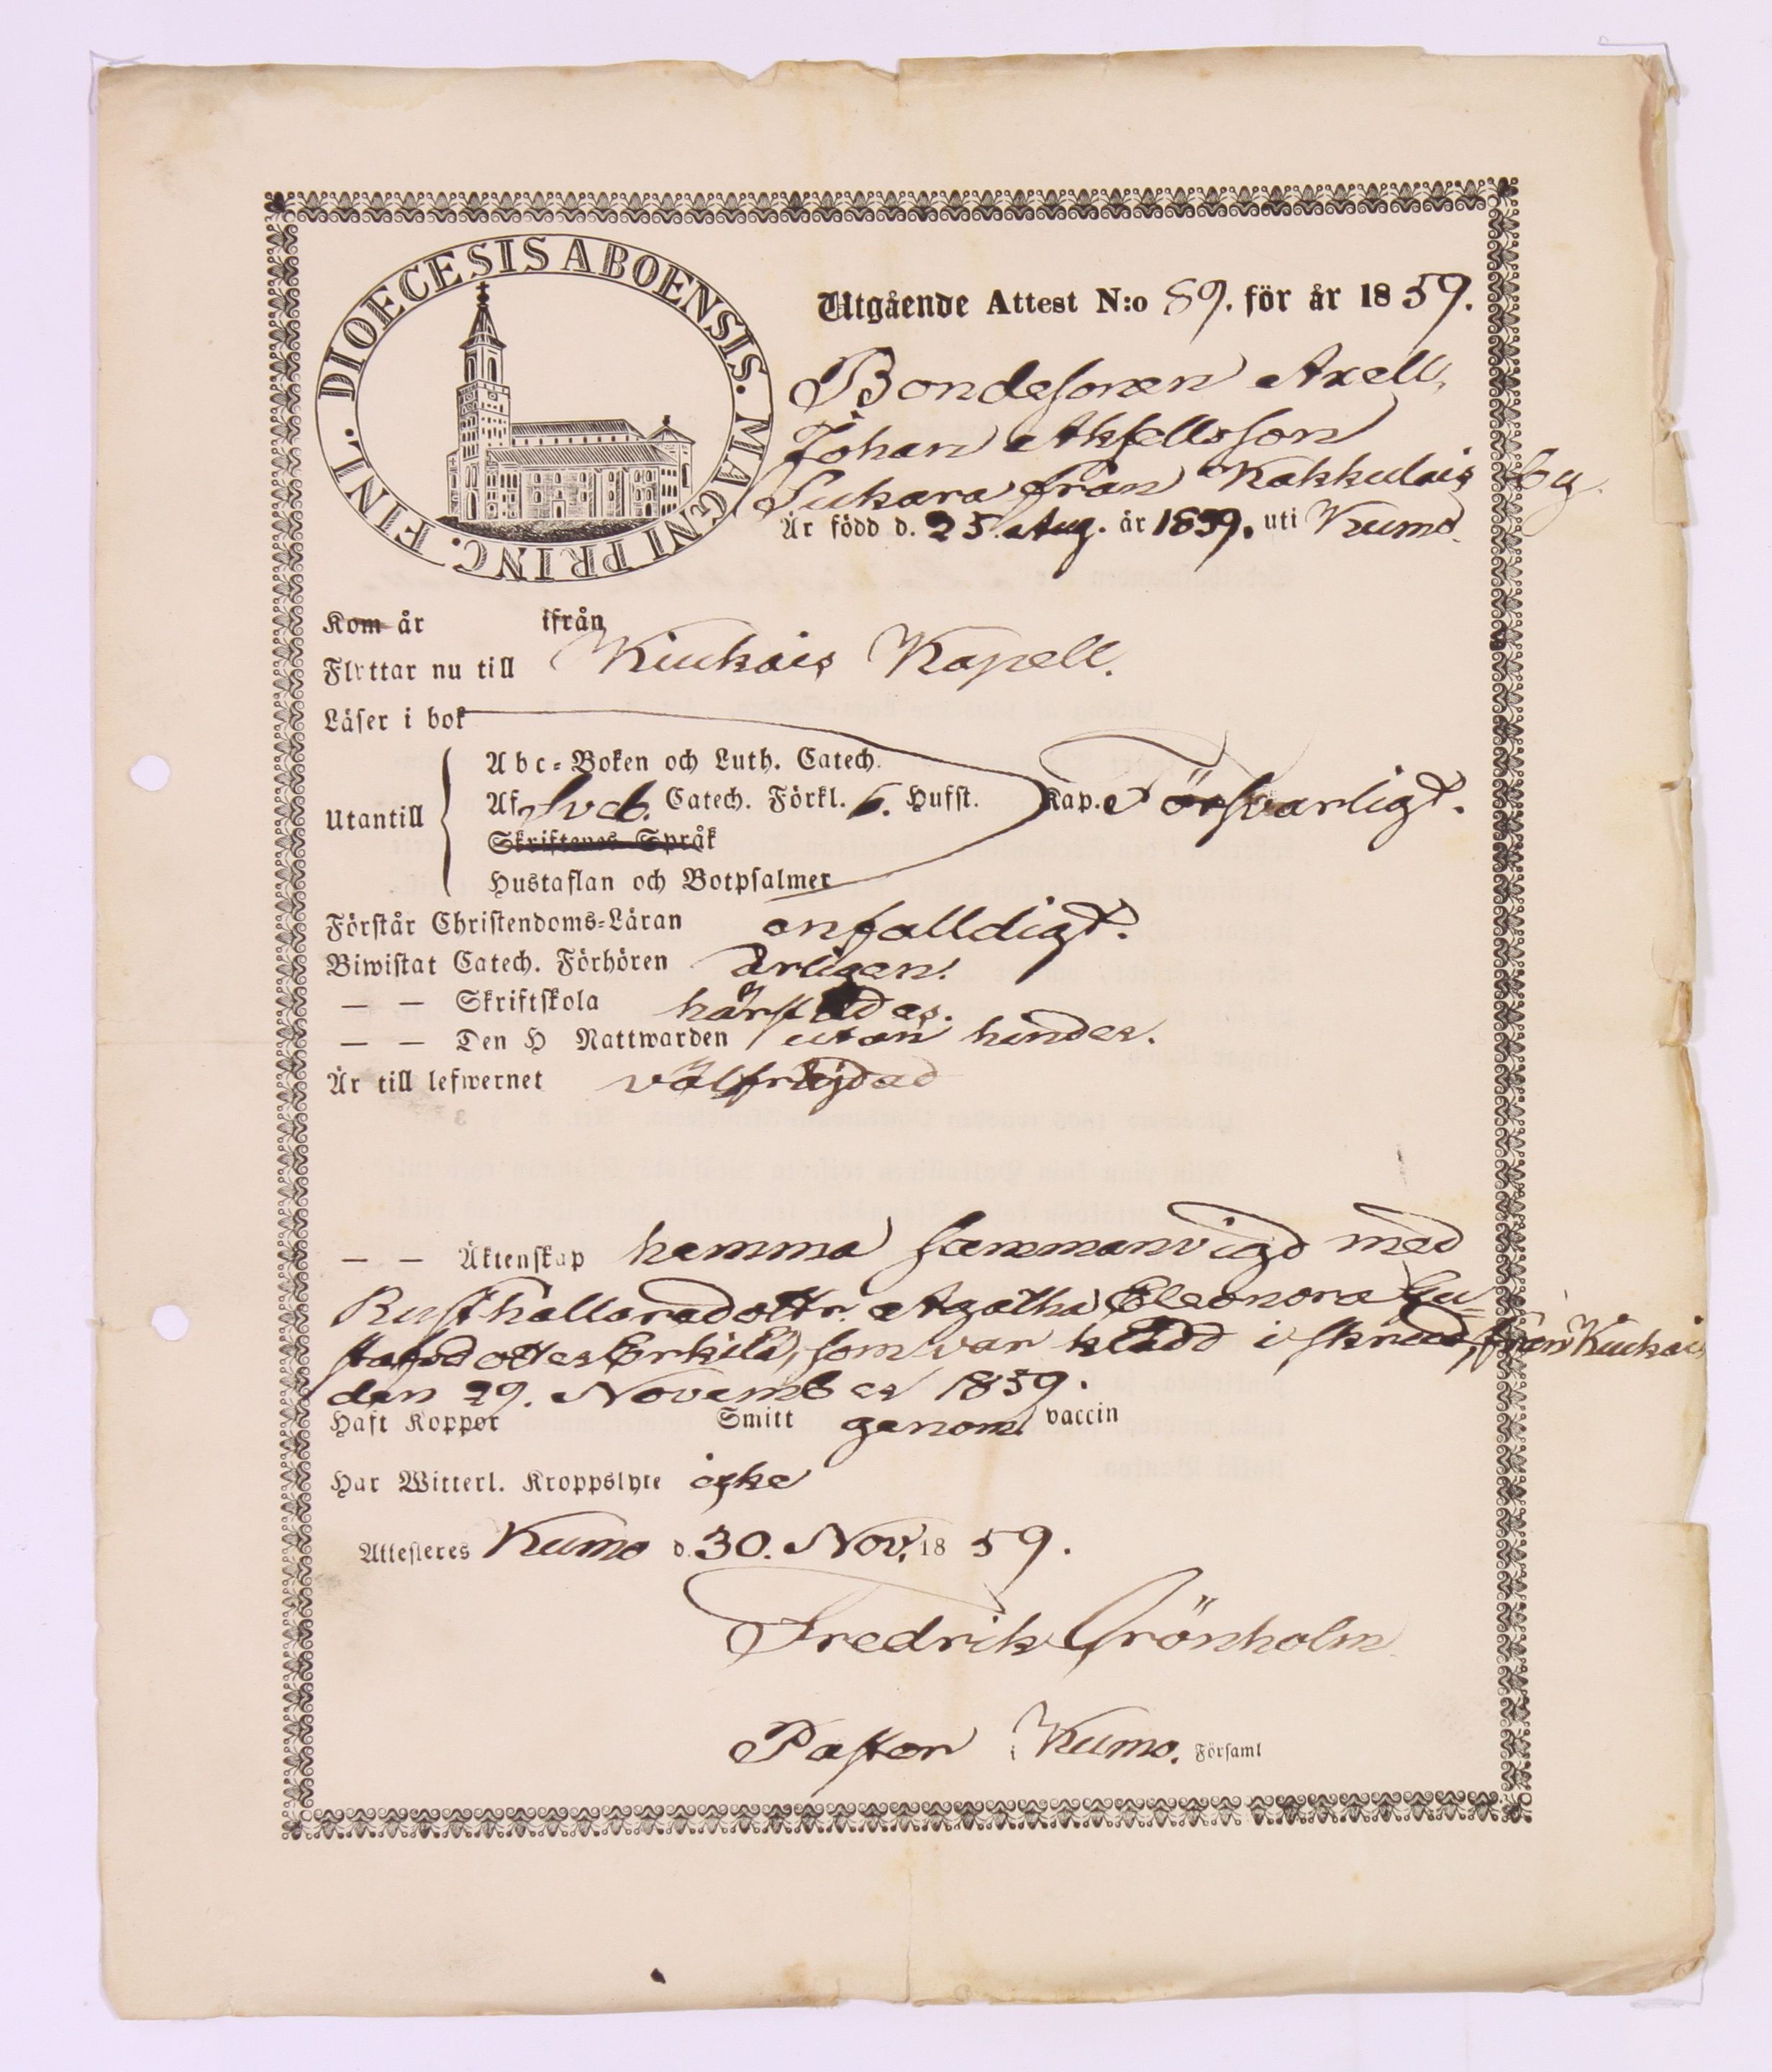 DIOECESIS ABOENSIS. MAGNI PRINC. FINL.
Utgående Attest N:o 89. för år 1859.
Bondesonen Axell,
Johan Akselsson
Sukara från Kakkulais by
Är född d. 25. Aug. år 1839. uti Kumo.
Kom år ifrån
Flyttar nu till Kiukais Kapell.
Läser i bok
Utantill
Abc-Boken och Luth. Catech.
Af Sveb. Catech. Förkl. 6. Hufst. Kap. Försvarligt.
Skriftenes Språk
Hustaflan och Botpsalmer
Förstår Christendoms-Läran enfalldigt.
Biwistat Catech. Förhören årligen.
— — Skriftskola härstädes.
— — Den H Nattwarden utan hinder.
Är till lefwernet välfrejdad
— — Äktenskap hemma sammanvigd med
Rusthållaredottr. Agatha Eleonora Gu-
stafsdotter Erkilä, som var klädd i skrud, från Kiukais
den 29. November 1859.
Haft Koppor Smitt genom vaccin
Har Witterl. Kroppslyte icke
Attesteres Kumo d. 30. Nov. 1859.
Fredrik Grönholm
Pastor i Kumo. Församl